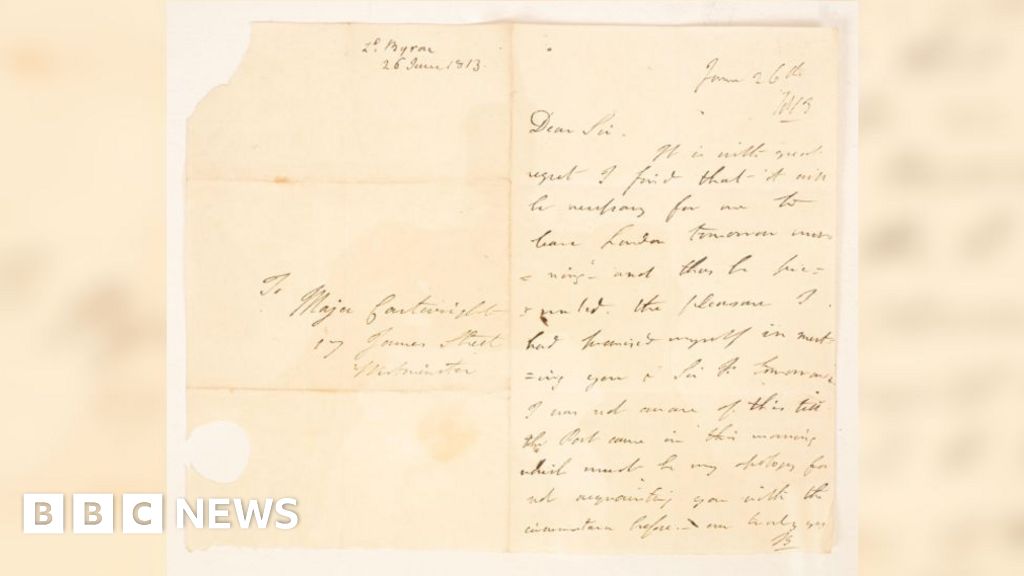 Ld. Byron
26 June 1813.
To
Major Cartwright
17 James Street
Westminster
June 26th
1813
Dear Sir.
It is with great
regret I find that it will
be necessary for me to
leave London tomorrow mor-
=ning - and thus be pre-
=vented the pleasure I
had promised myself in meet-
=ing you & Sir
I was not aware of this till
the Post came in this morning
which must be my apology for
not acquainting you with the
circumstance before. -
B
BBC NEWS